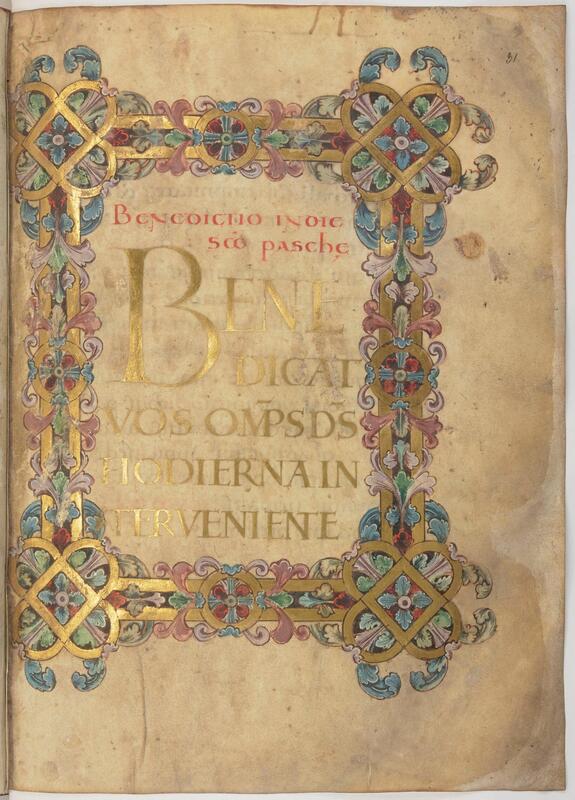 31
Benedictio in die
sc̄o paschę
BENE
DICAT
VOS OM̄PS DS
HODIERNA IN
TERVENIENTE